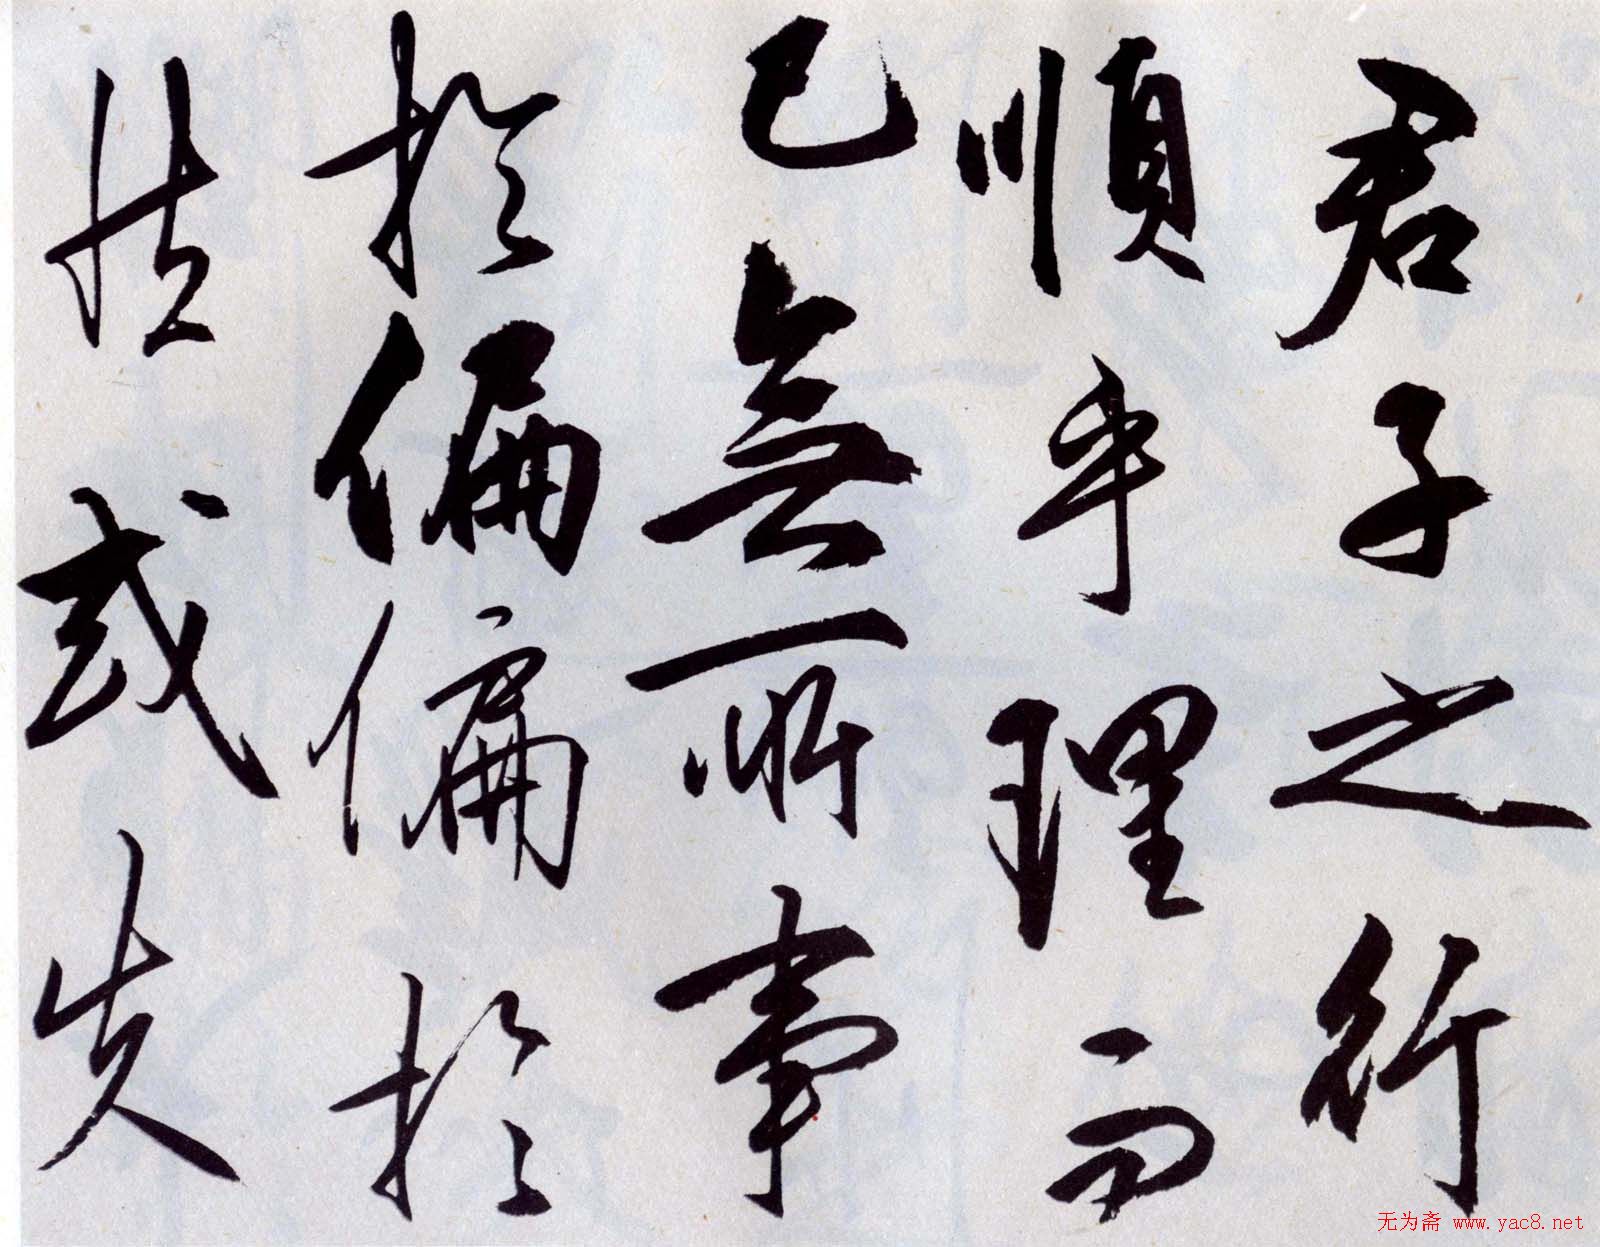 君子之行
順乎理而
已無所事
於偏偏於
怯或失
无为斋 www.yac8.net